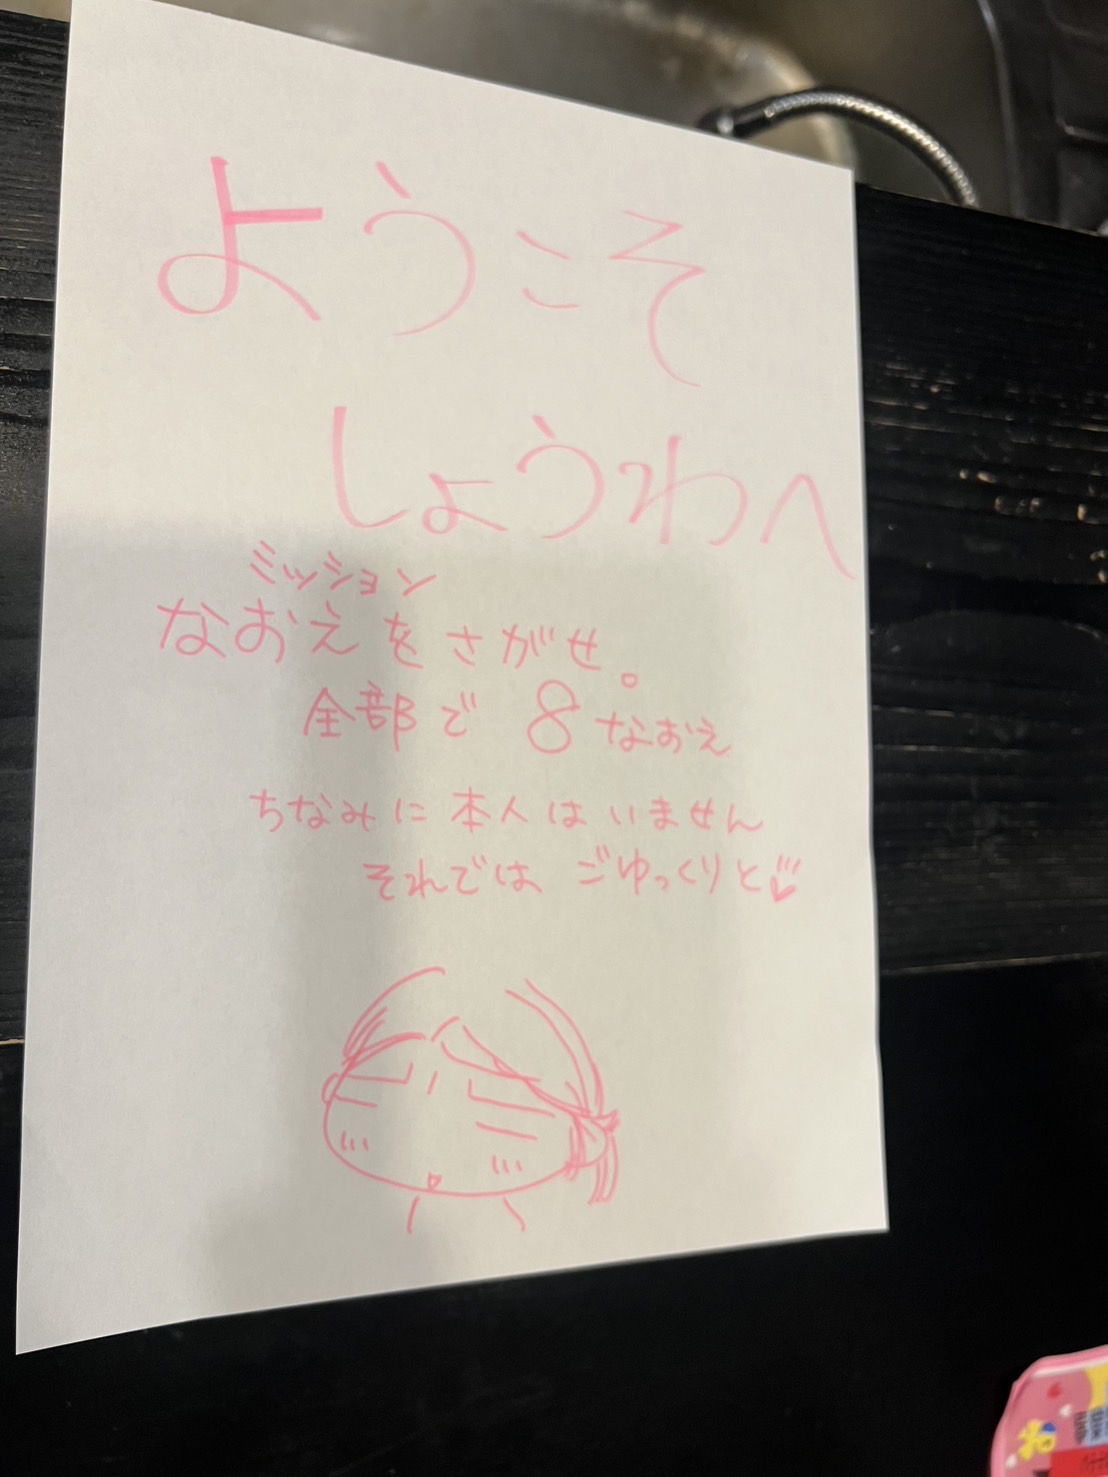 ようこそ
しょうわへ
ミッション
なおえをさがせ。
全部で 8なおえ
ちなみに本人はいません
それでは ごゆっくりと♥